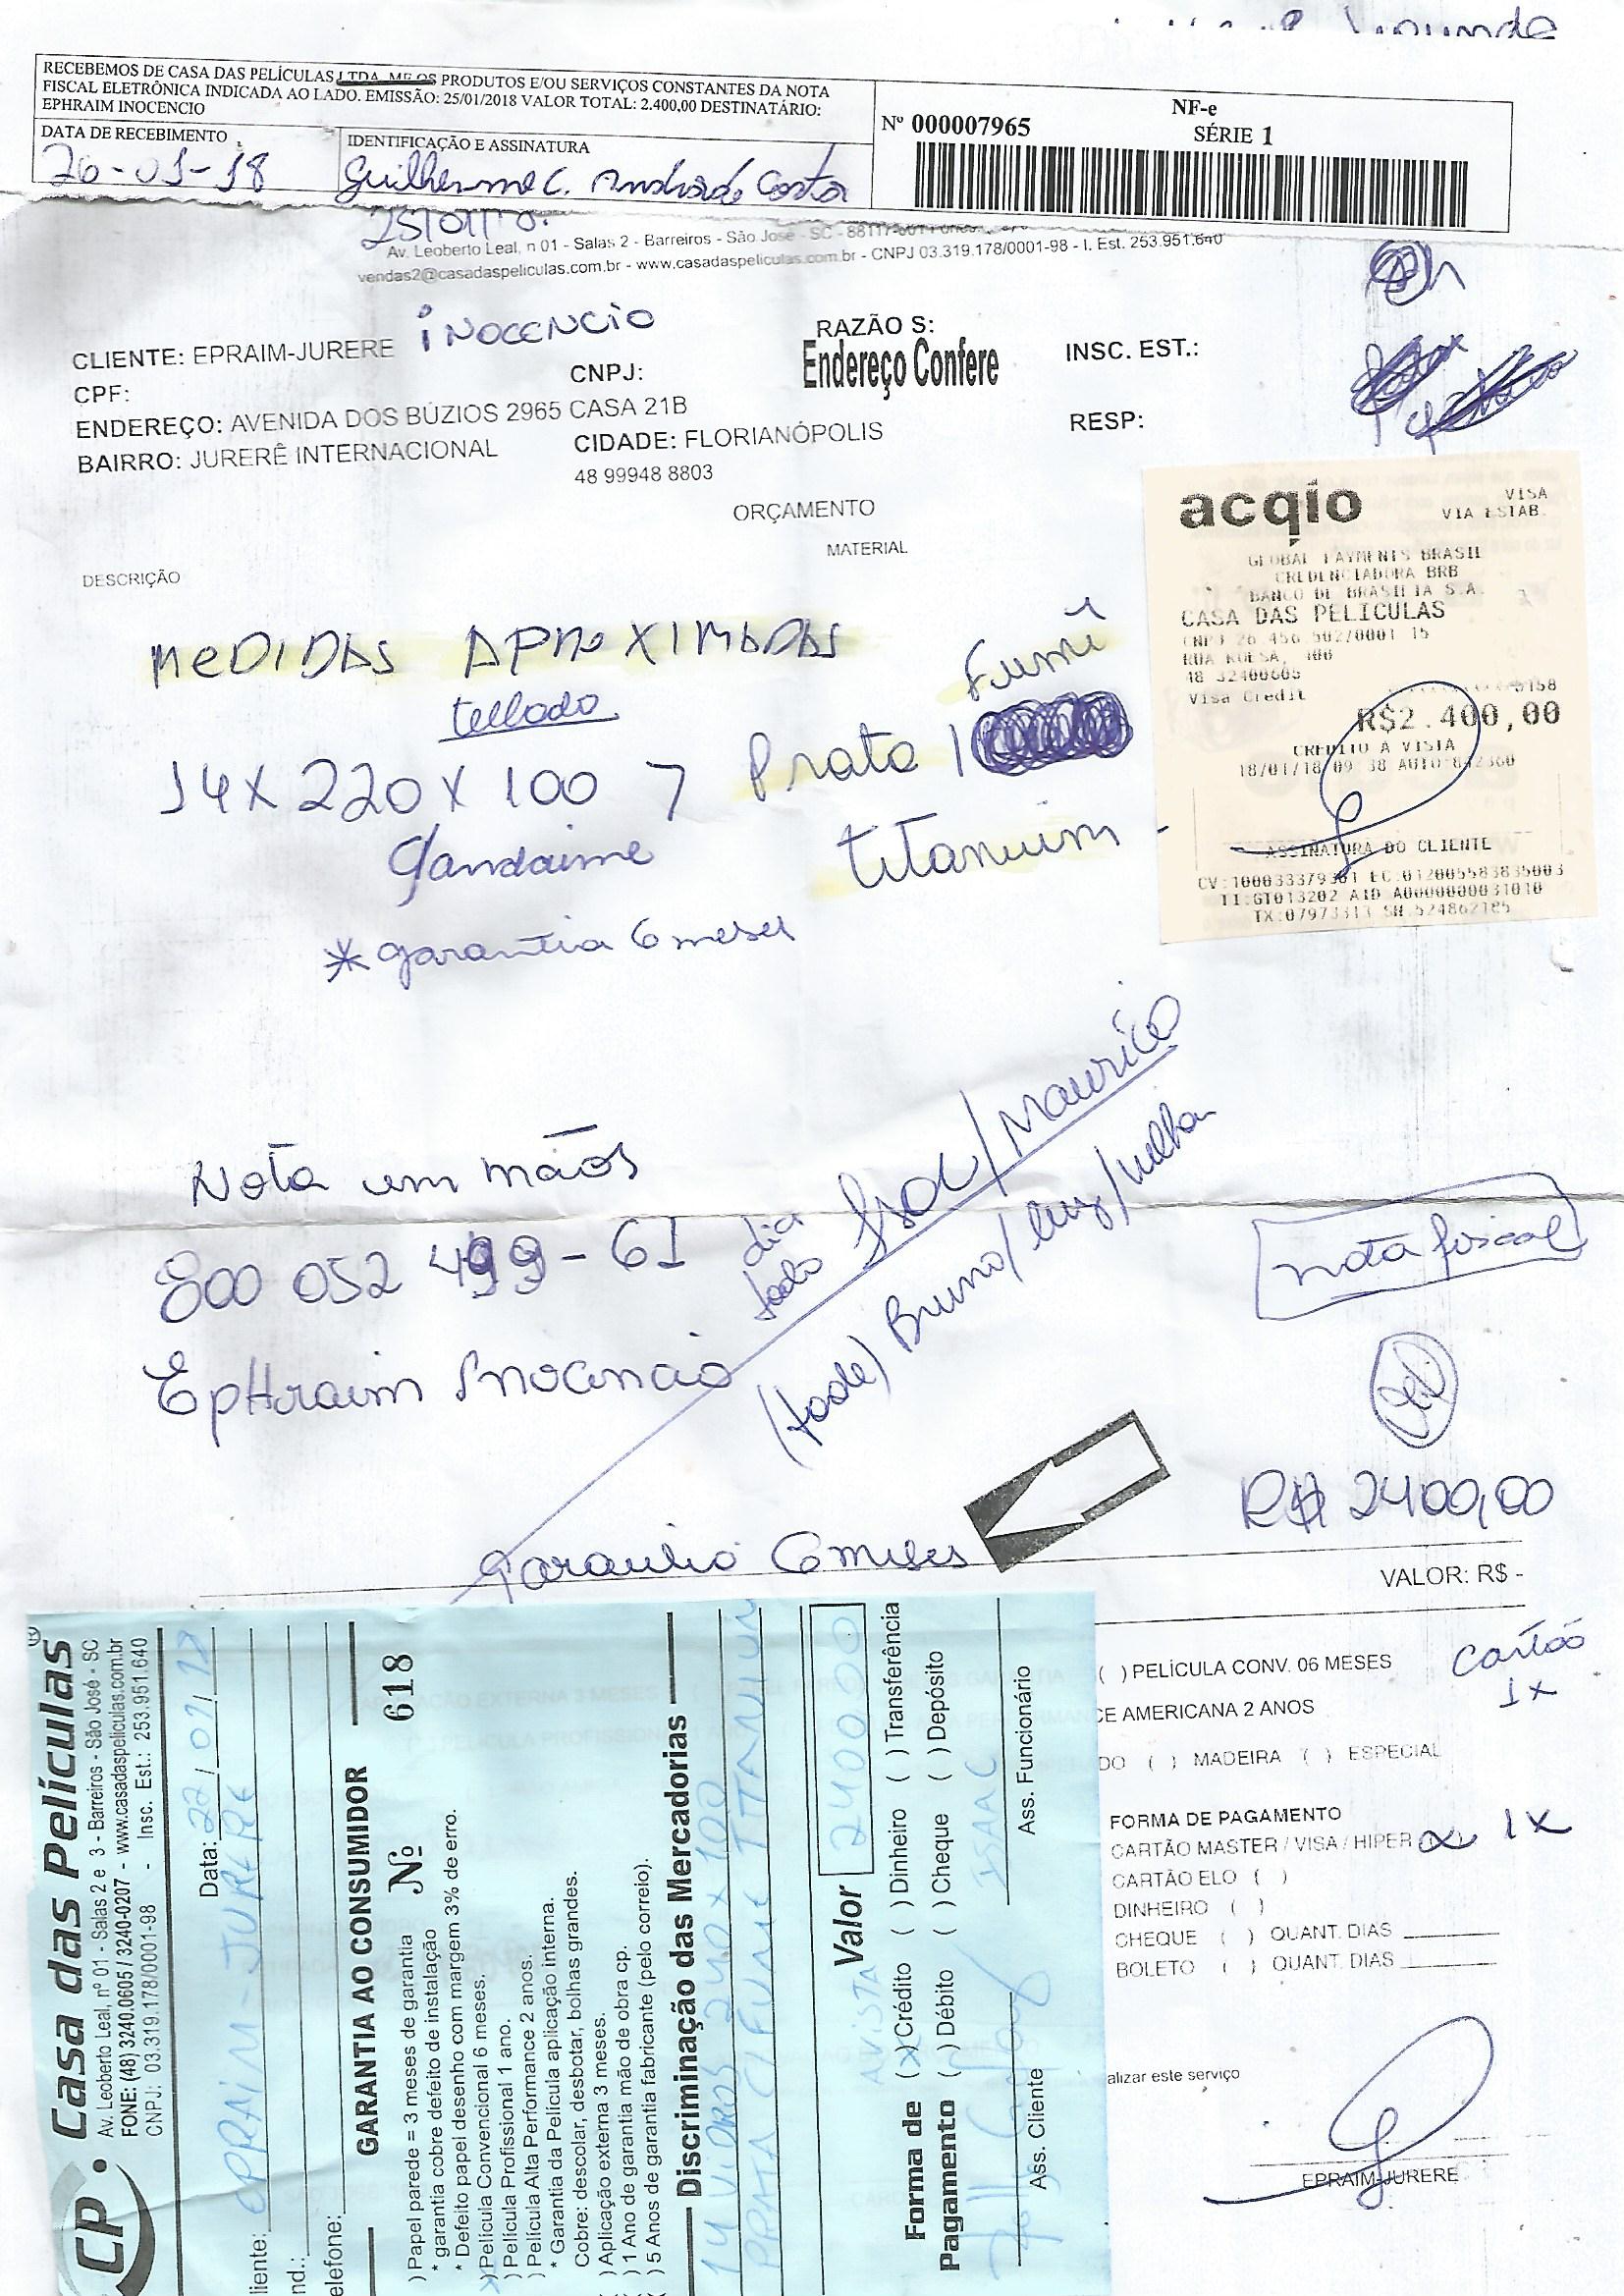 RECEBEMOS DE CASA DAS PELÍCULAS LTDA. ME OS PRODUTOS E/OU SERVIÇOS CONSTANTES DA NOTA
FISCAL ELETRÔNICA INDICADA AO LADO. EMISSÃO: 25/01/2018 VALOR TOTAL: 2.400,00 DESTINATÁRIO:
EPHRAIM INOCENCIO
DATA DE RECEBIMENTO
26-01-18
IDENTIFICAÇÃO E ASSINATURA
Guilherme C. Andrade Costa
NF-e
Nº 000007965
SÉRIE 1
Av. Leoberto Leal, n 01 - Salas 2 - Barreiros - São José - SC
vendas2@casadaspeliculas.com.br - www.casadaspeliculas.com.br - CNPJ 03.319.178/0001-98 - I. Est. 253.951.640
CLIENTE: EPRAIM-JURERE INOCENCIO
RAZÃO S:
Endereço Confere
INSC. EST.:
CPF:
CNPJ:
ENDEREÇO: AVENIDA DOS BÚZIOS 2965 CASA 21B
RESP:
BAIRRO: JURERÊ INTERNACIONAL
CIDADE: FLORIANÓPOLIS
48 99948 8803
ORÇAMENTO
MATERIAL
DESCRIÇÃO
MEDIDAS APROXIMADAS
Fumê
14 x 220 x 100
Prata
titanium
* garantia 6 meses
acqio
VISA
VIA ESTAB.
GLOBAL PAYMENTS BRASIL
CREDENCIADORA BRB
BANCO DE BRASILIA S.A.
CASA DAS PELICULAS
CNPJ 26.456.502/0001 15
48 32400605
Visa Credit
R$2.400,00
CREDITO A VISTA
18/01/18 09:38
ASSINATURA DO CLIENTE
TI:GT013202 AID A0000000031010
Nota em mãos
800 052 499-61
Ephraim Inocencio
dia todo Isac/Mauricio
(tarde) Bruno/Luiz/
nota fiscal
R$ 2400,00
garantia 6 meses
VALOR: R$ -
( ) PELÍCULA CONV. 06 MESES
cartão
1x
CE AMERICANA 2 ANOS
DO ( ) MADEIRA ( ) ESPECIAL
FORMA DE PAGAMENTO
CARTÃO MASTER / VISA / HIPER (x) 1x
CARTÃO ELO ( )
DINHEIRO ( )
CHEQUE ( ) QUANT. DIAS
BOLETO ( ) QUANT. DIAS
alizar este serviço
EPRAIM-JURERE
CP. Casa das Películas
Av. Leoberto Leal, nº 01 - Salas 2 e 3 - Barreiros - São José - SC
FONE: (48) 3240.0605 / 3240-0207 - www.casadaspeliculas.com.br
CNPJ: 03.319.178/0001-98 - Insc. Est.: 253.951.640
Data: 22/01/18
liente: EPRAIM-JURERE
nd.:
elefone:
GARANTIA AO CONSUMIDOR
Nº 618
) Papel parede = 3 meses de garantia
* garantia cobre defeito de instalação
* Defeito papel desenho com margem 3% de erro.
x) Película Convencional 6 meses.
) Película Profissional 1 ano.
) Película Alta Performance 2 anos.
* Garantia da Película aplicação interna.
Cobre: descolar, desbotar, bolhas grandes.
) Aplicação externa 3 meses.
) 1 Ano de garantia mão de obra cp.
) 5 Anos de garantia fabricante (pelo correio).
Discriminação das Mercadorias
14 VIDROS 240 x 100
PRATA C/ FUMÊ TITANIUM
Valor 2400,00
AVISTA
Forma de Pagamento
(x) Crédito ( ) Dinheiro ( ) Transferência
( ) Débito ( ) Cheque ( ) Depósito
ISAAC
Ass. Cliente
Ass. Funcionário